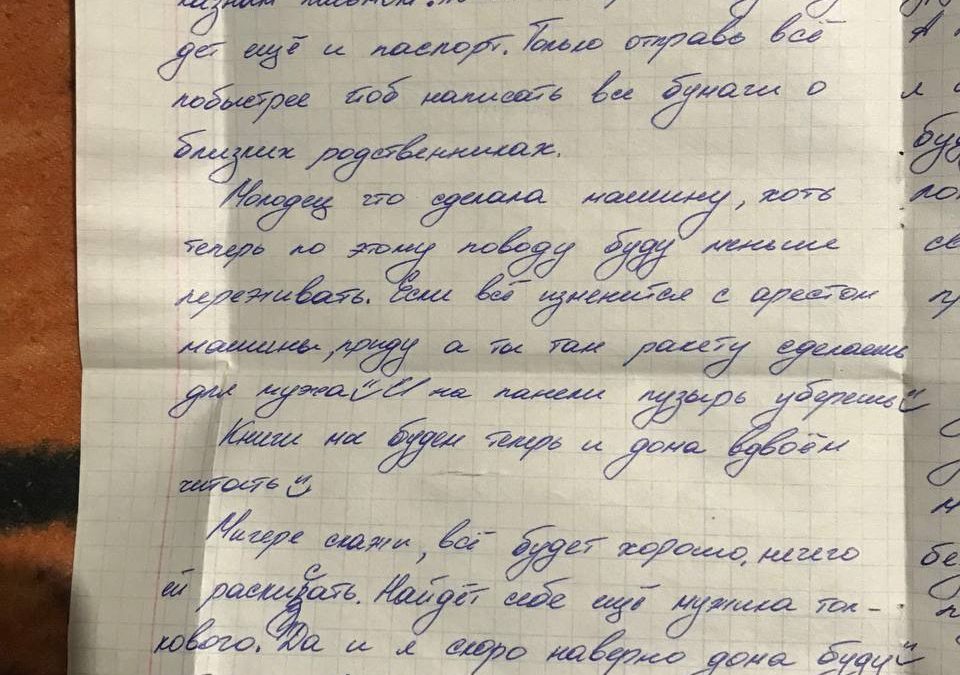 дет ещё и паспорт. Только отправь всё
побыстрее чтоб написать все бумаги о
близких родственниках.
Молодец что сделала машину, хоть
теперь по этому поводу буду меньше
переживать. Если всё изменится с арестом
машины, приду а ты там ракету сделаешь
для мужа И на панели пузырь уберешь
Книги мы будем теперь и дома вдвоём
читать
скажи, всё будет хорошо, нечего
ей раскисать. Найдёт себе ещё мужика тол-
кового. Да и я скоро наверно дома буду